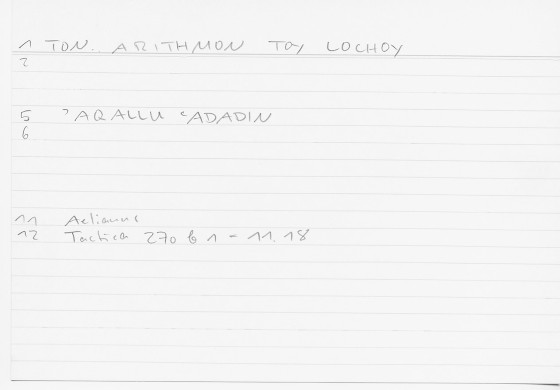 1 TON.. ARITHMON TOY LOCHOY
2
5 ʾAQALLU ʿADADIN
6
11 Aelianus
12 Tactica 270 b 1 - 11.18